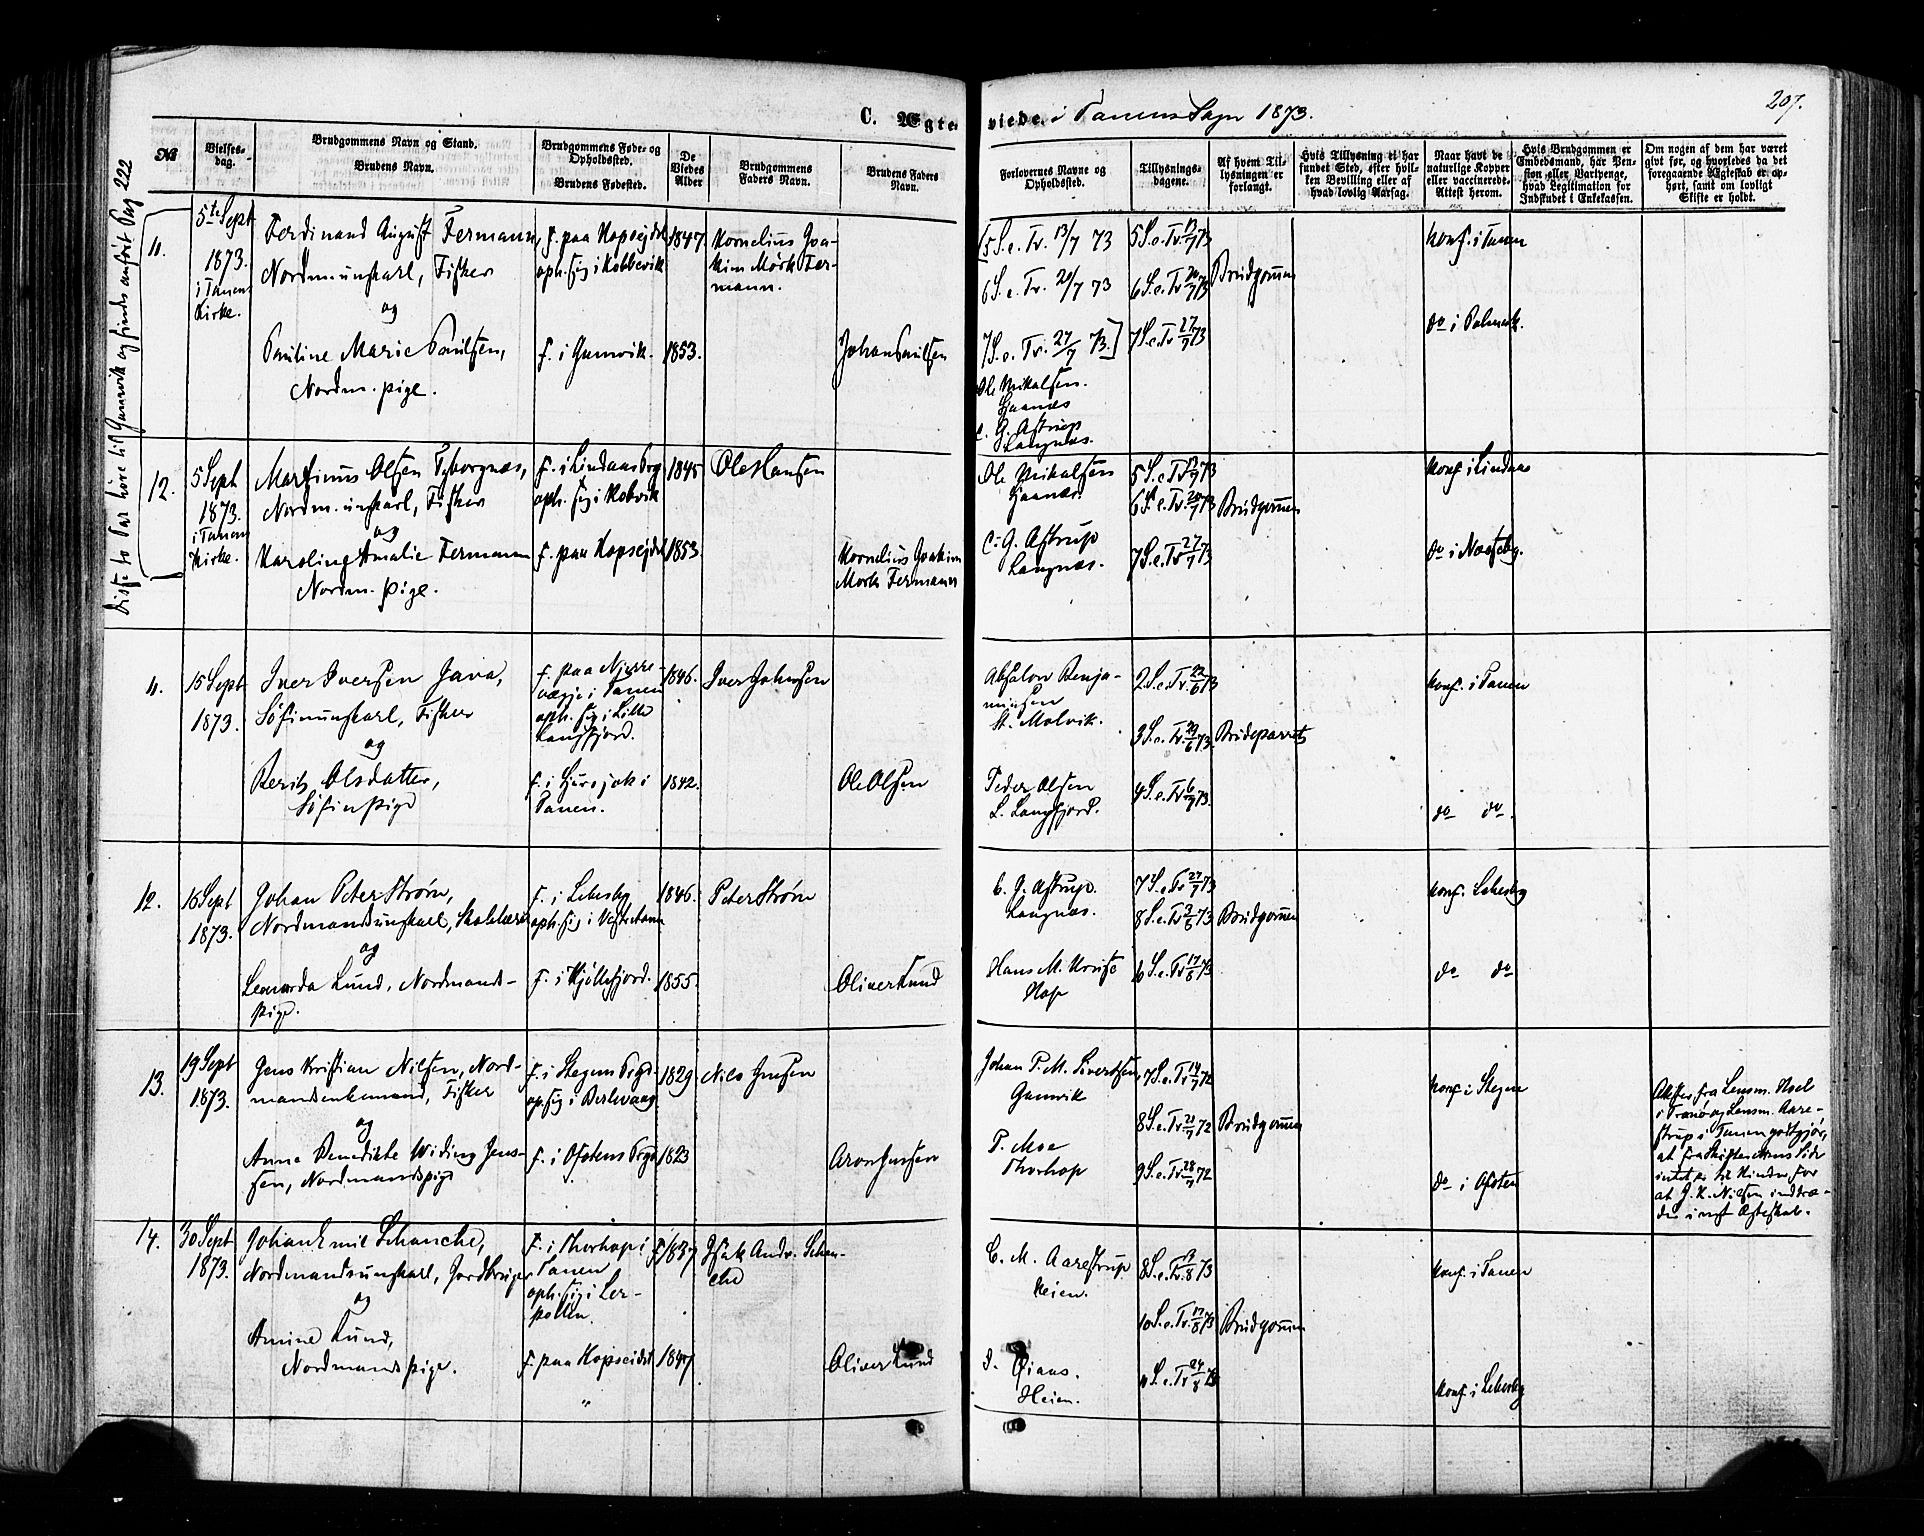 C. Ægteviede i Tanens Sogn 1873.
207.
No
Vielses-
dag.
Brudgommens Navn og Stand.
Brudens Navn.
Brudgommens Føde- og
Opholdssted.
Brudens Fødested.
De
Viedes
Alder
Brudgommens
Faders Navn.
Brudens Faders
Navn.
Forlovernes Navne og
Opholdssted.
Tillysnings-
dagene.
Af hvem Til-
lysningen er
forlangt.
Hvis Tillysning ei har
fundet Sted, efter hvil-
ken Bevilling eller af
hvad lovlig Aarsag.
Naar havt de
naturlige Kopper
eller vaccinerede.
Attest herom.
Hvis Brudgommen er
Embedsmand, har Pen-
sion eller Vartpenge,
hvad Legitimation for
Indskudet i Enkekassen.
Om nogen af dem har været
givt før, og hvorledes da det
foregaaende Ægteskab er op-
hørt, samt om lovligt
Skifte er holdt.
Disse to Par höre til Gamvik og findes anfört Pag 222
11.
5te Sept
1873.
i Tanens
Kirke.
Ferdinand August Fermann,
Nordm. ungkarl, Fisker
og
Pauline Marie Paulsen,
Nordm. pige.
f. paa Hopseidet
oph. sig i Kobbevik
f. i Gamvik.
1847.
1853.
Kornelius Joa-
kim Mörk Fer-
mann.
Johan Paulsen
[5 S. e. Tr. 13/7 73
6 S. e. Tr. 20/7 73
7 S. e. Tr. 27/7 73.]
Ole Mikalsen.
C. G. Astrup
Langnæs.
5 S. e. Tr. 13/7 73
6 S. e. Tr. 20/7 73
7 S. e. Tr. 27/7 73
Brudgommen
Konf. i Tanen
do i Polmak.
12.
5 Sept
1873.
i Tanens
Kirke.
Martinus Olsen Dyborgnæs,
Nordm. ungkarl, Fisker
og
Karoline Amalie Fermann
Nordm. pige.
f. i Lindaas Prg
oph. sig i Kobvik
f. paa Hopseidet
1845
1853.
Ole Hansen
Kornelius Joakim
Mörk Fermann
Ole Mikalsen
C. G. Astrup
Langnæs.
5 S. e. Tr. 13/7 73
6 S. e. Tr. 20/7 73
7 S. e. Tr. 27/7 73
Brudgommen
Konf. i Lindaas
do i Næsseby.
11.
15 Sept
1873.
Iver Iversen Java,
Söfinungkarl, Fisker
og
Berit Olsdatter,
Söfinpige
f. paa
i Tanen
oph. sig i Lille
Langfjord.
f. i
Tanen.
1846.
1842.
Iver Johnsen
Ole Olsen
Absalon Benja-
minsen
St. Molvik.
Peder Olsen
L. Langfjord.
2 S. e. Tr. 22/6 73
3 S. e. Tr. 29/6 73.
4 S. e. Tr. 6/7 73.
Brudeparret
Konf. i Tanen
do do.
12.
16 Sept
1873.
Johan Peter Ström,
Nordmandsungkarl, Skolelærer
og
Leonarda Lund, Nordmands-
pige.
f. i Lebesby
oph. sig i Vestertana
f. i Kjöllefjord.
1846.
1855.
Peter Ström
Oliver Lund
C. G. Astrup.
Langnæs.
Hans M.
Hop
7 S. e. Tr. 27/7 73
8 S. e. Tr. 73
S. e. Tr. 17/8 73
Brudgommen
Konf. i Lebesby
do do
13.
19 Sept
1873.
Jens Kristian Nilsen, Nord-
mandsenkemand, Fisker
og
Anna Benedikte Widing Jens-
sen, Nordmandspige
f. i Stegens Prgd
op. sig i Berlevaag
f. i Ofotens Prgd
1829.
1823
Nils Jensen
Aron Jenssen
Johan P. M. Sivertsen,
Gamvik
P. Moe
Thorhop
7 S. e. Tr. 14/7 72
8 S. e. Tr. 21/7 72
9 S. e. Tr. 28/7 72
Brudgommen
Konf. i Stegen
do i Ofoten
Attester fra Lensm.
i Tranö og Lensm. Aare-
strup i Tanen godtgjör,
at fra Skifterettens Side
intet er til Hinder for
at J. K. Nilsen indtræ-
der i nyt Ægteskab.
14.
30 Sept
1873.
Johan Emil Schanche,
Nordmandsungkarl, Jordbruger
og
Amine Lund,
Nordmandspige.
f. i Thorhop i
Tanen
oph. sig i Ler-
pollen.
f. paa Hopseidet
"
1837
1847
Isak Andr. Schan-
che
Oliver Lund
C. M. Aarestrup
Heien.
Heien.
8 S. e. Tr. 3/8 73
10 S. e. Tr. 17/8 73
11 S. e. Tr. 24/8 73
Brudgommen
Konf. i Tanen
Konf. i Lebesby